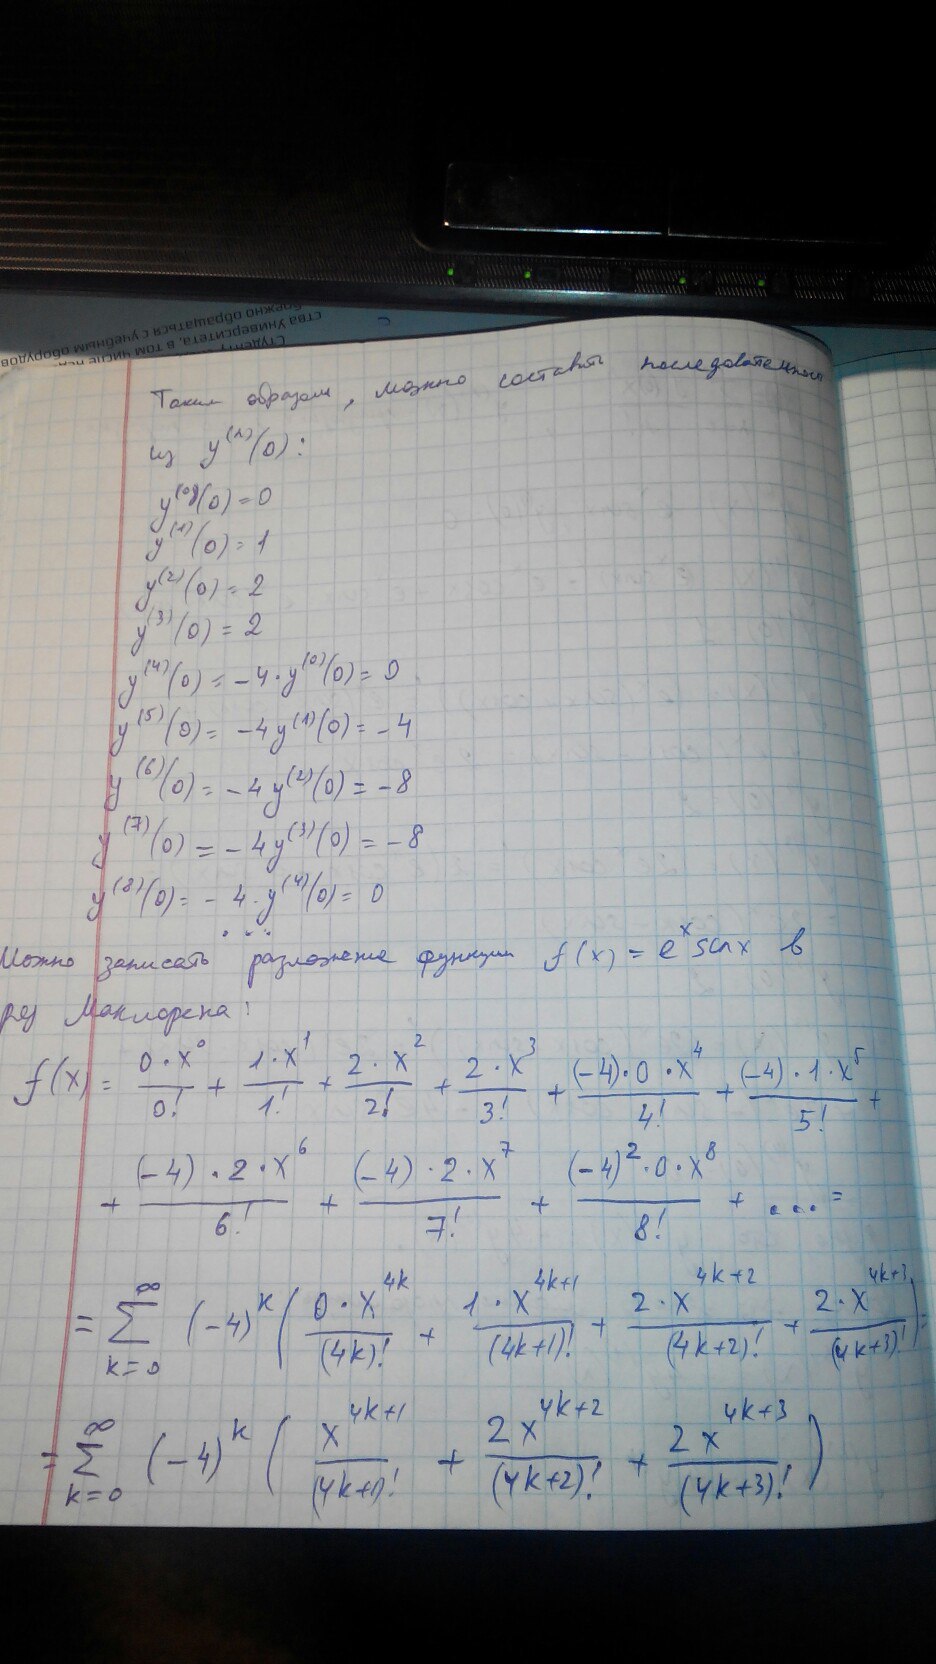 ства Университета, в том числе
бережно обращаться с учебным оборудов
Таким образом, можно составить последовательность
из y^(n)(0):
y^(0)(0) = 0
y^(1)(0) = 1
y^(2)(0) = 2
y^(3)(0) = 2
y^(4)(0) = -4·y^(0)(0) = 0
y^(5)(0) = -4y^(1)(0) = -4
y^(6)(0) = -4y^(2)(0) = -8
y^(7)(0) = -4y^(3)(0) = -8
y^(8)(0) = -4·y^(4)(0) = 0
...
Можно записать разложение функции f(x) = e^x sinx в
ряд Маклорена:
f(x) = 0·x^0/0! + 1·x^1/1! + 2·x^2/2! + 2·x^3/3! + (-4)·0·x^4/4! + (-4)·1·x^5/5! +
+ (-4)·2·x^6/6! + (-4)·2·x^7/7! + (-4)^2·0·x^8/8! + ... =
= ∑_{k=0}^{∞} (-4)^k (0·x^{4k}/(4k)! + 1·x^{4k+1}/(4k+1)! + 2·x^{4k+2}/(4k+2)! + 2·x^{4k+3}/(4k+3)!) =
= ∑_{k=0}^{∞} (-4)^k (x^{4k+1}/(4k+1)! + 2x^{4k+2}/(4k+2)! + 2x^{4k+3}/(4k+3)!)